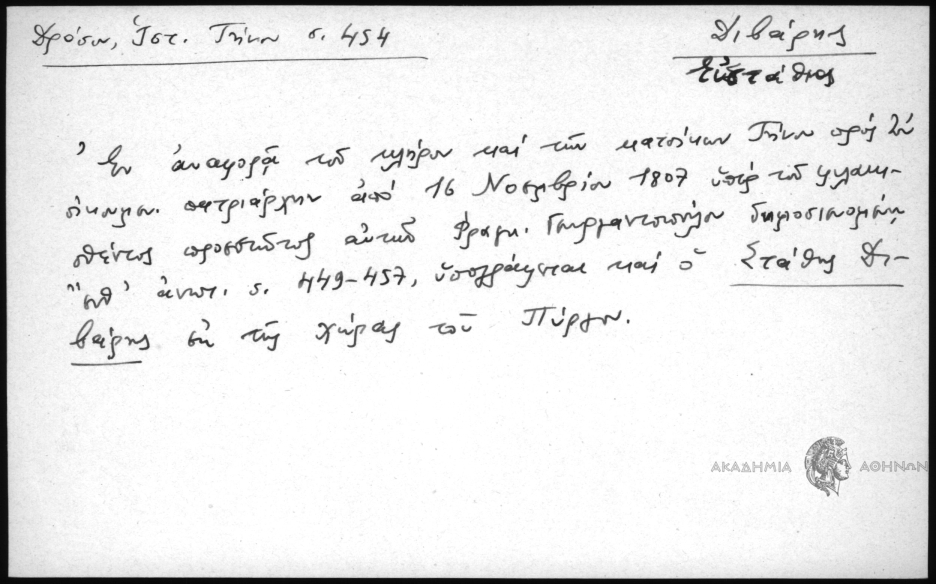 Δρόσου, Ἱστ. Τήνου σ. 454
Διβάρης
Εὐστάθιος
Ἐν ἀναφορᾷ τοῦ κλήρου καὶ τῶν κατοίκων Τήνου πρὸς τὸν
οἰκουμ. πατριάρχην ἀπὸ 16 Νοεμβρίου 1807 ὑπὲρ τοῦ φυλακι-
σθέντος προεστῶτος αὐτῶν Φραγκ. δημοσιευομένῃ
ἀνωτ. σ. 449-457, ὑπογράφεται καὶ ὁ Στάθης Δι-
βάρης ἐκ τῆς χώρας τοῦ Πύργου.
ΑΚΑΔΗΜΙΑ ΑΘΗΝΩΝ